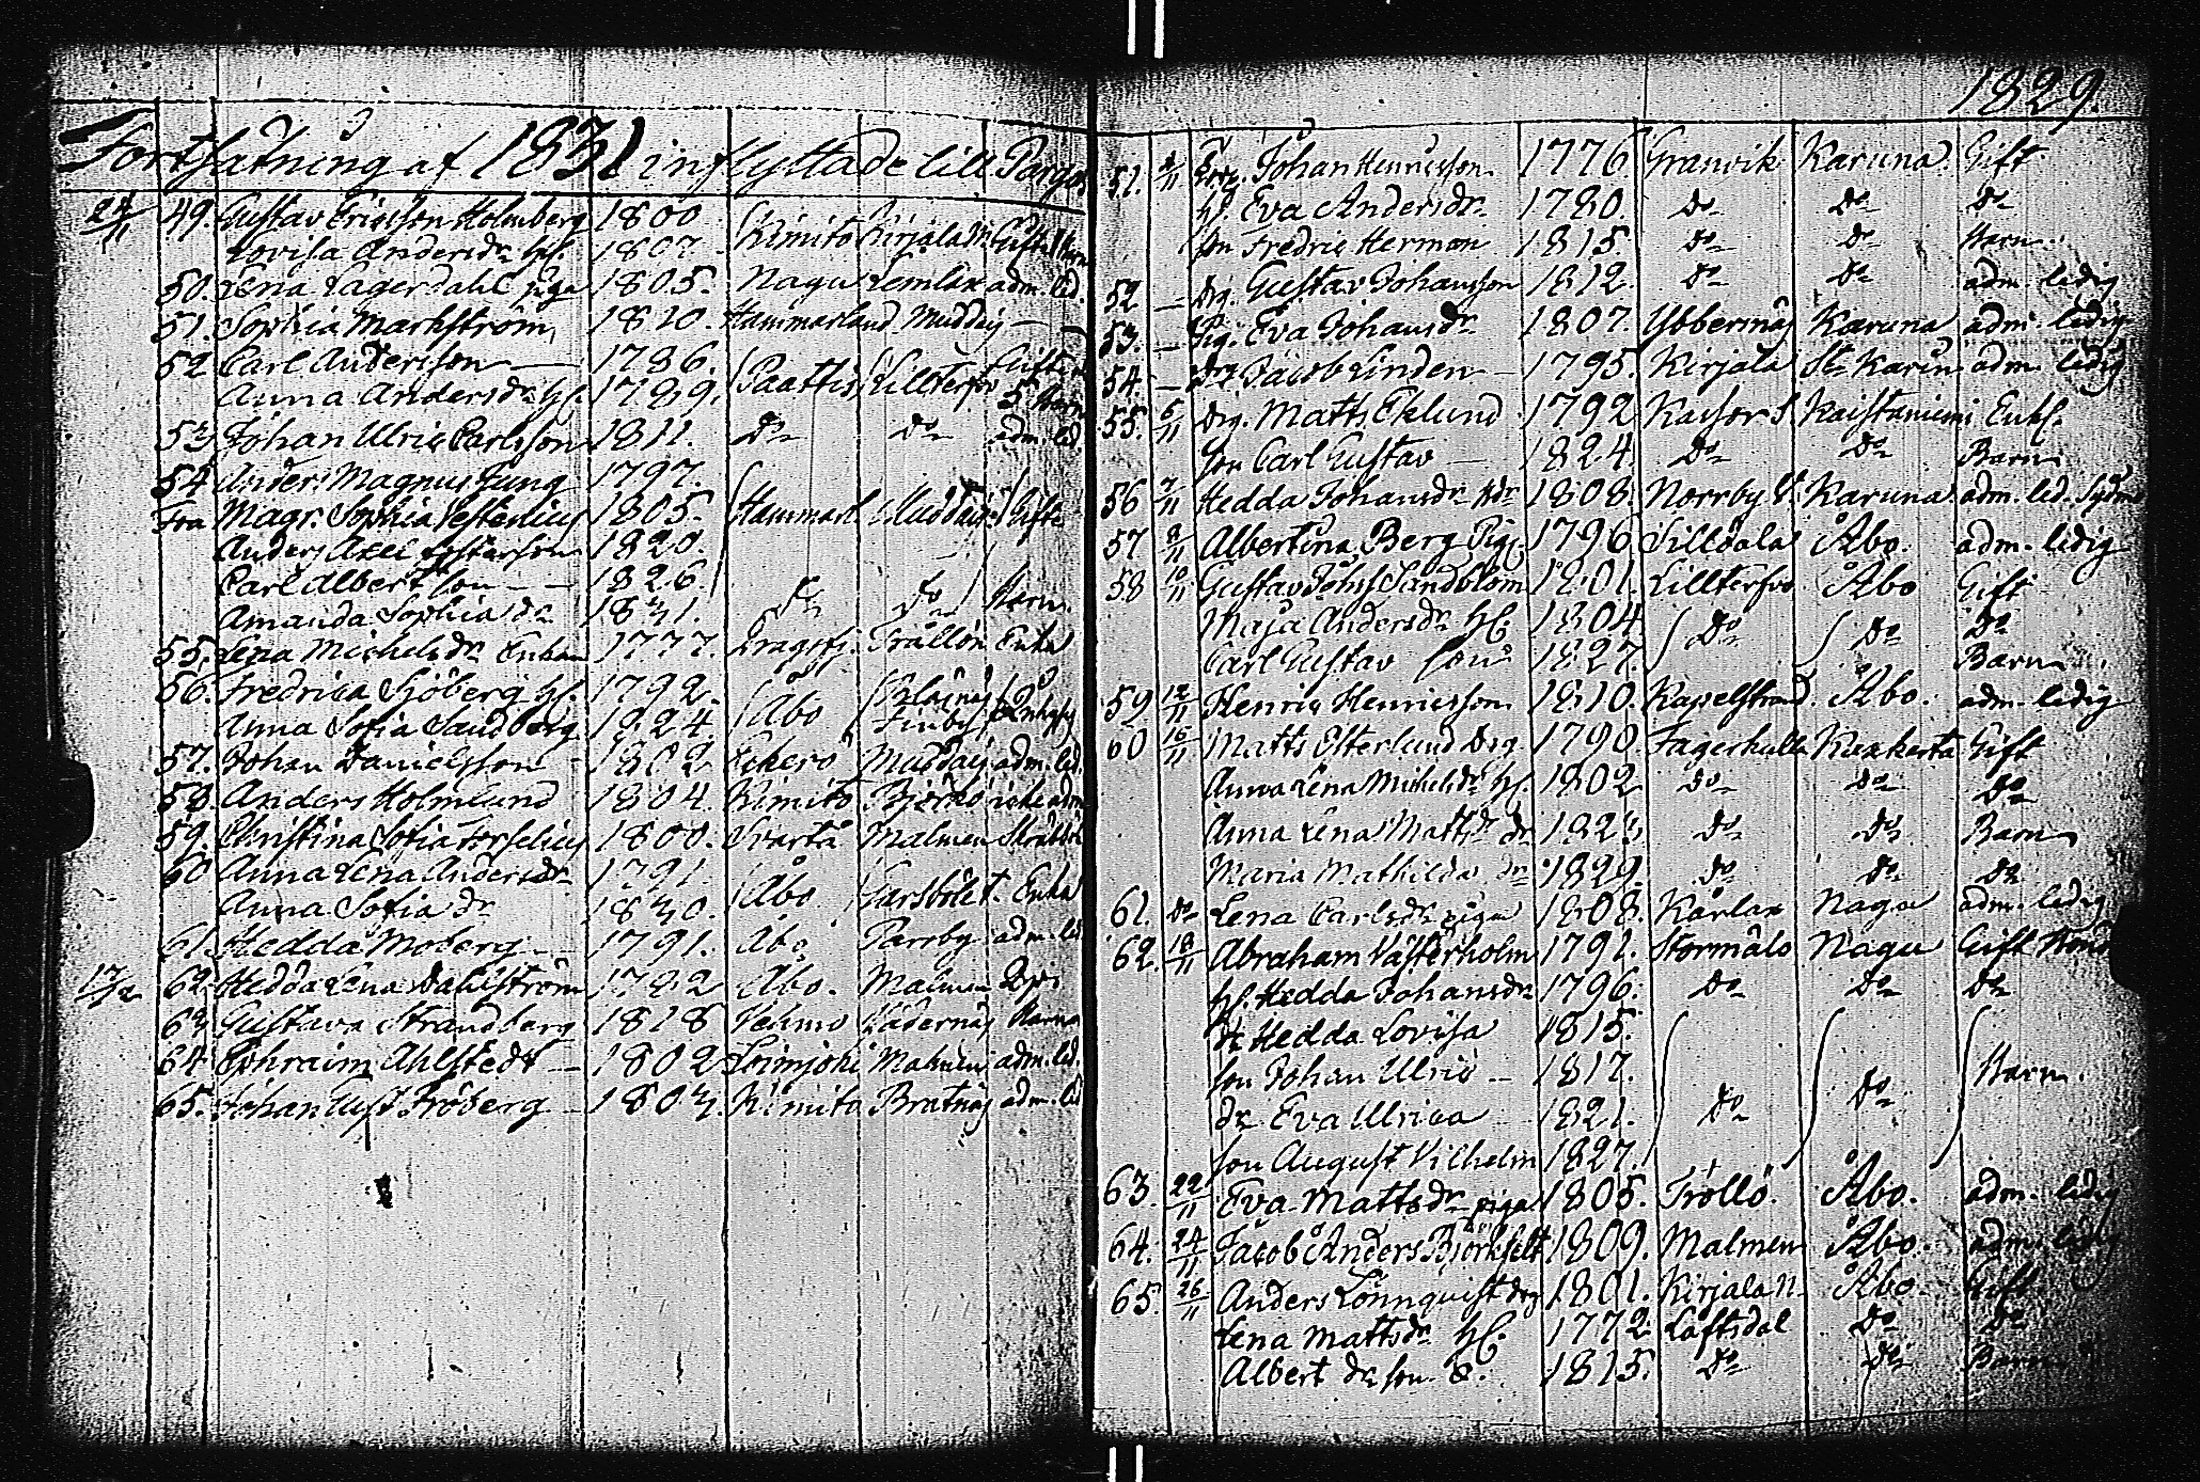 Fortsatning af 1831 inflyttade till Pargas
24/11 49. Gustav Ericsson Holmberg 1800 Kimito Kirjala
Lovisa Andersdr hf. 1807
50. Lena Lagerdahl piga 1805. Nagu Lemlax adm. led.
51. Sophia Markström 1810. Hammarland Muddais —
52 Carl Andersson — 1786. Paattis Lilltersvo Gifte
Anna Andersdr hf. 1789. 5 barn
53 Johan Ulric Carlsson 1811. Do Do adm. led
54 Anders Magnus Jung 1797. Hammarl. Muddais Gifte
Fru Magr. Sophia 1805.
Anders Axel 1820.
Carl Albert son — 1826. Do Do Barn.
Amanda Sophia dr 1831.
55. Lena Michelsdr Enkan 1777. Dragsfj. Trällön Enka
56. Fredrica Sjöberg hf. 1792 Åbo
Anna Sofia Sandberg 1824. Finby
57. Johan Danielsson 1802 Muddais adm. led.
58. Anders Holmlund 1804. Kimito Björkö icke adm
59. Christina Sofia 1800. Svartå Malmen
60 Anna Lena Andersdr 1791. Åbo Garsböle t. Enka
Anna Sofia dr 1830.
61. Hedda Moberg — 1791. Åbo Parsby adm. led
17/12 62 Hedda Lena Dahlström 1782 Åbo. Malmen
63 Gustava Strandberg 1818 Vehmo Wädernäs Barn
64 Ephraim Ahlstedt — 1802 Loimjoki Malmen adm. led.
65. Johan Gust Fröberg — 1803. Kimito Bratnäs adm. led
1829.
51. 2/11 Johan Henricsson 1776. Granvik Karuna Gift
hf. Eva Andersdr 1780. Do Do Do
son Fredric Herman 1815 Do Do Barn
52 — drg. Gustav Johansson 1812. Do Do adm. ledig
53. — Pig. Eva Johansdr 1807. Ybbersnäs Karuna adm. ledig
54. — drg Jacob Linden — 1795. Kirjala St. Karin adm. ledig
55. 6/11 drg. Matts Eklund 1792 Kaisor S. Enkl.
son Carl Gustav — 1824. Do Do Barn
56 7/11 Hedda Johansdr 1808. Norrby V. Karuna adm. led.
57 8/11 Albertina Berg Pig. 1796 Silldala Åbo. adm. ledig
58 10/11 Gustav Johss Sandblom 1801. Lilltersvo Åbo Gift
Maja Andersdr hf. 1804. Do Do Do
Carl Gustav son 1827. Barn
59 12/11 Henric Henricsson 1810. Kasselstrand. Åbo. adm. ledig
60 16/11 Matts Osterlund drg. 1790. Fagerkulla Kuskerta Gift
Anna Lena Michelsdr hf. 1802 Do Do Do
Anna Lena Mattsdr dr 1823 Do Do Barn
Maria Mathilda dr 1829. Do Do Do
61. Do Lena Carlsdr piga 1808. Kårlax Nagu adm. ledig
62. 18/11 Abraham Västerholm 1791. Stormälo Nagu Gift
hf. Hedda Johansdr 1796. Do Do Do
dr Hedda Lovisa 1815.
son Johan Ulric — 1817. Barn.
dr Eva Ulrica 1821. Do Do
son August Vilhelm 1827.
63. 22/11 Eva Mattsdr piga 1805. Trollö. Åbo. adm. ledig
64. 24/11 Jacob Anders Björkfelt 1809. Malmen Åbo. adm. ledig
65. 26/11 Anders Lönnquist drg 1801. Kirjala N. Åbo. Gift
Lena Mattsdr hf. 1772 Låftsdal Do Do
Albert do son 1815. Do Do Barn